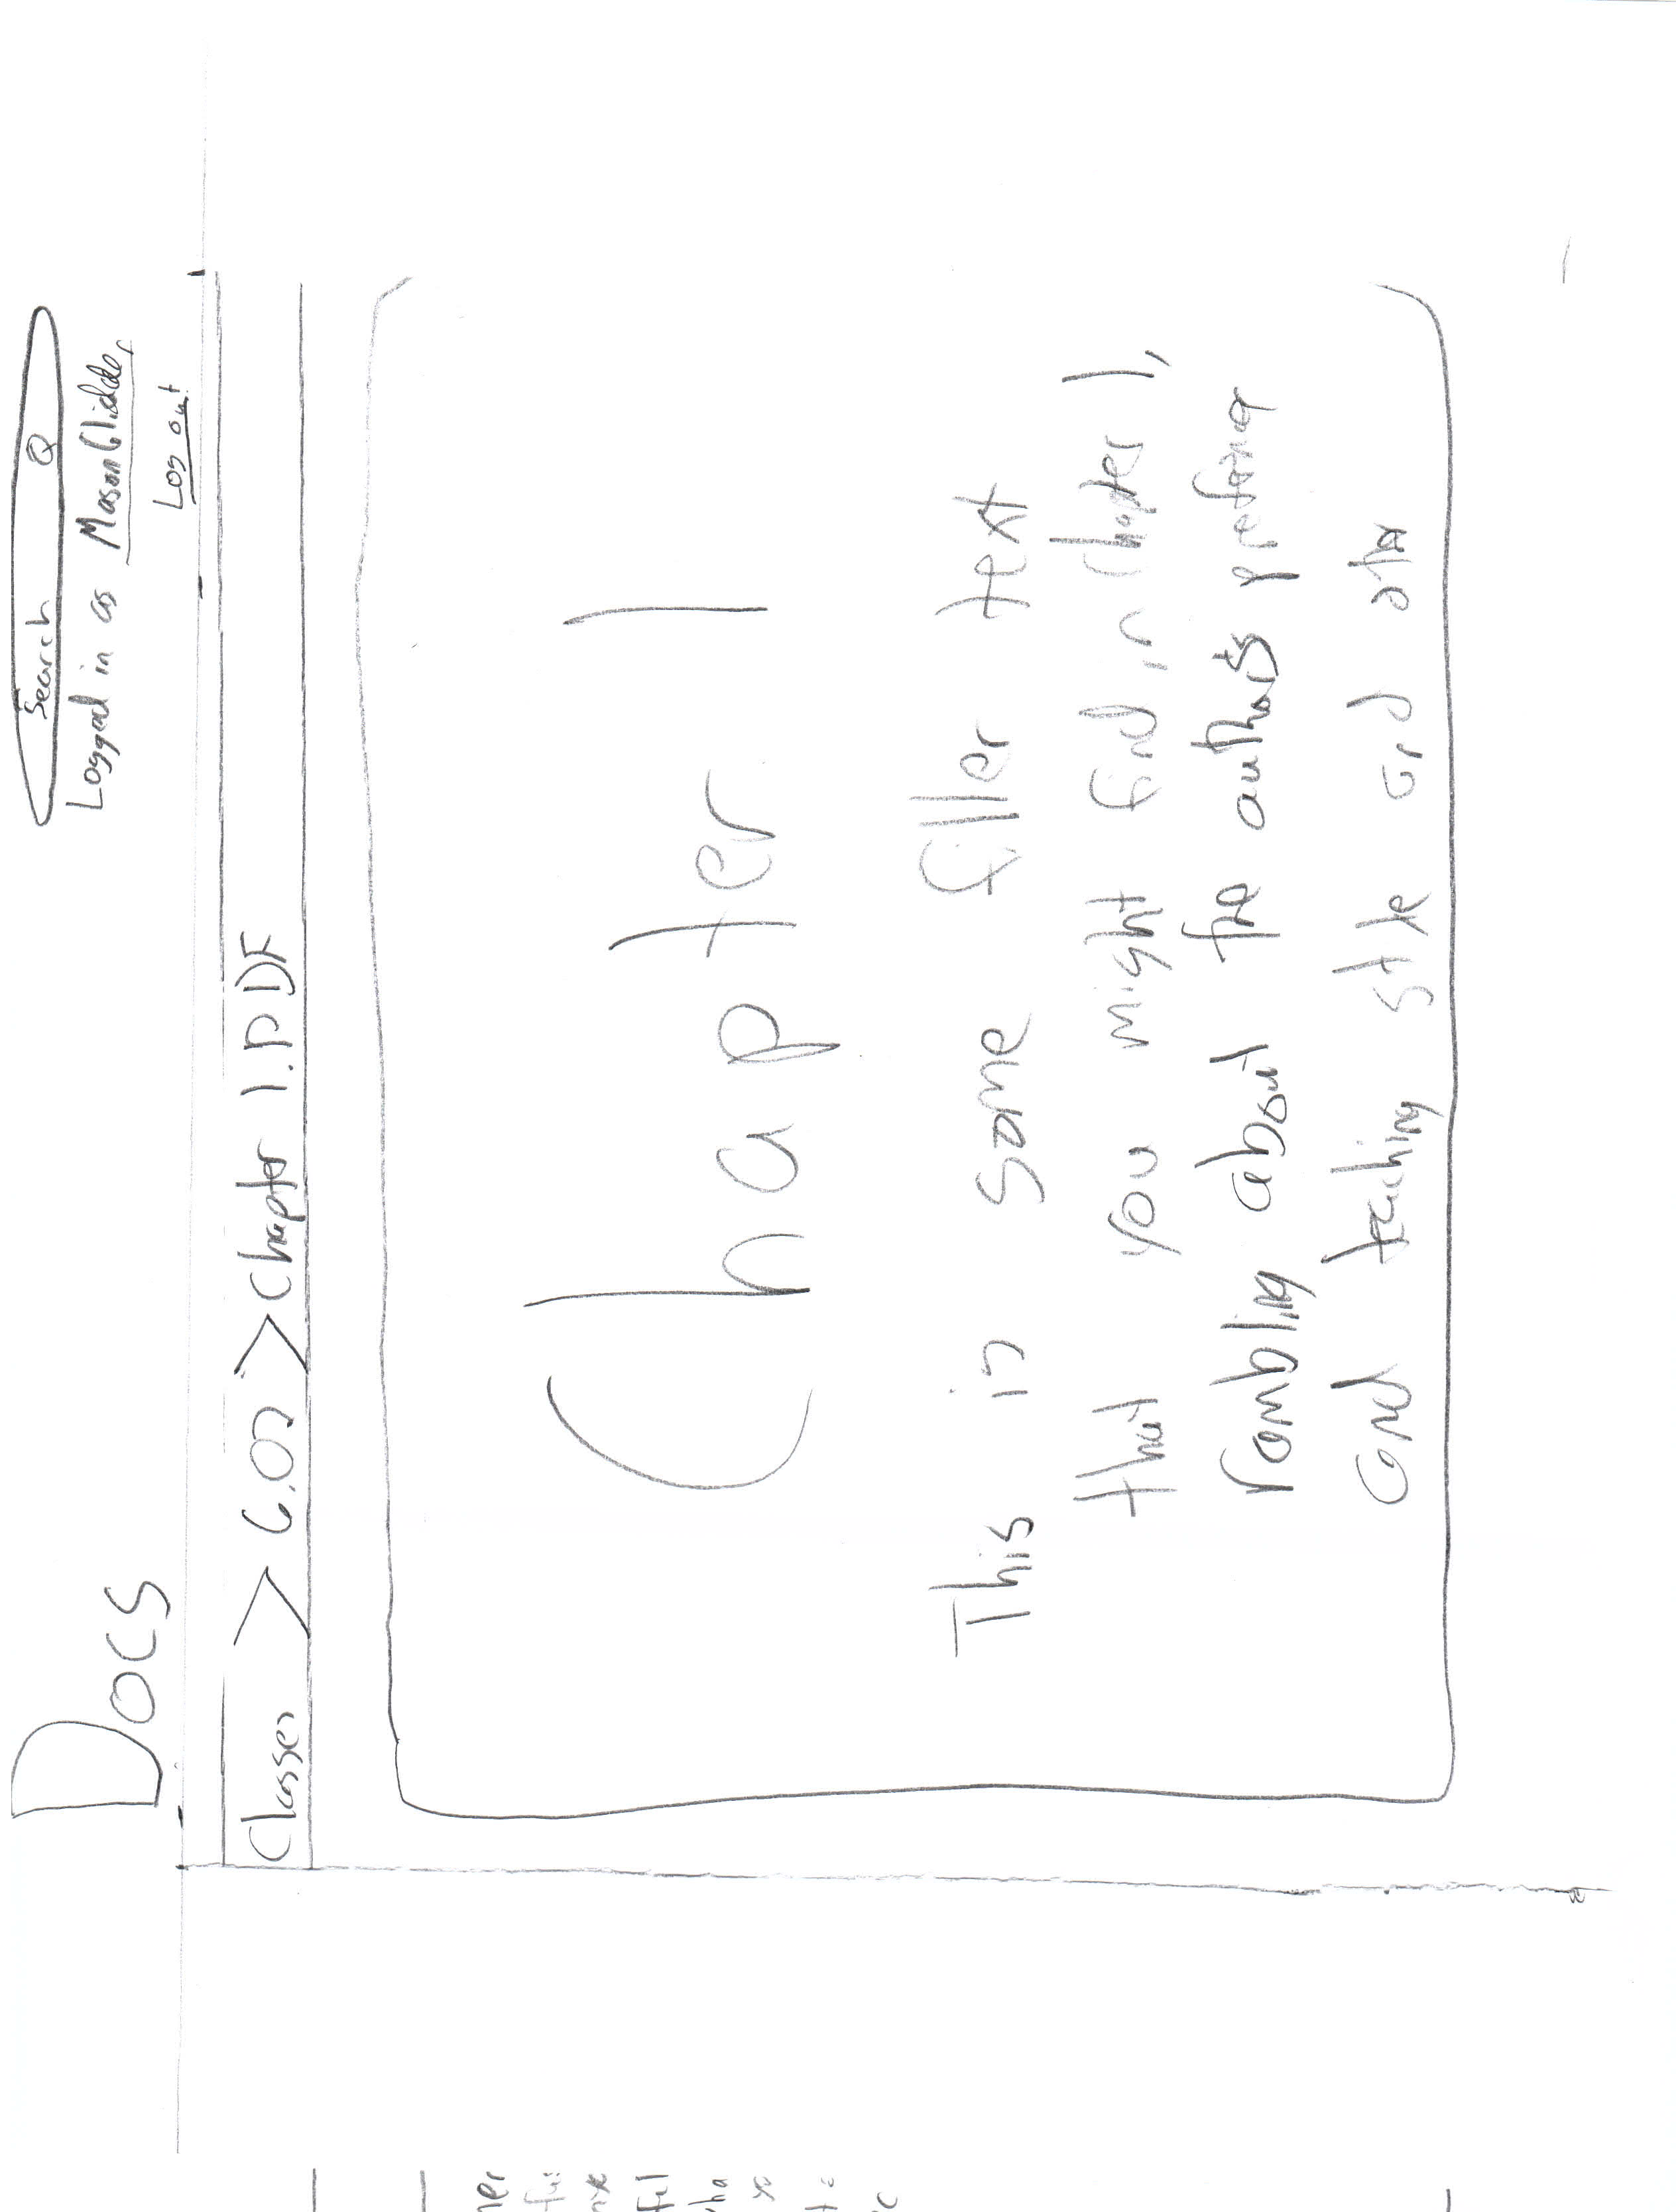 Docs
Search
Logged in as MasonGlidden
Log out
Classes > 6.00 > Chapter 1.PDF
Chapter 1
This is some filler text
that you might find in Chapter 1,
rambling about the authors
and teaching style and
ner